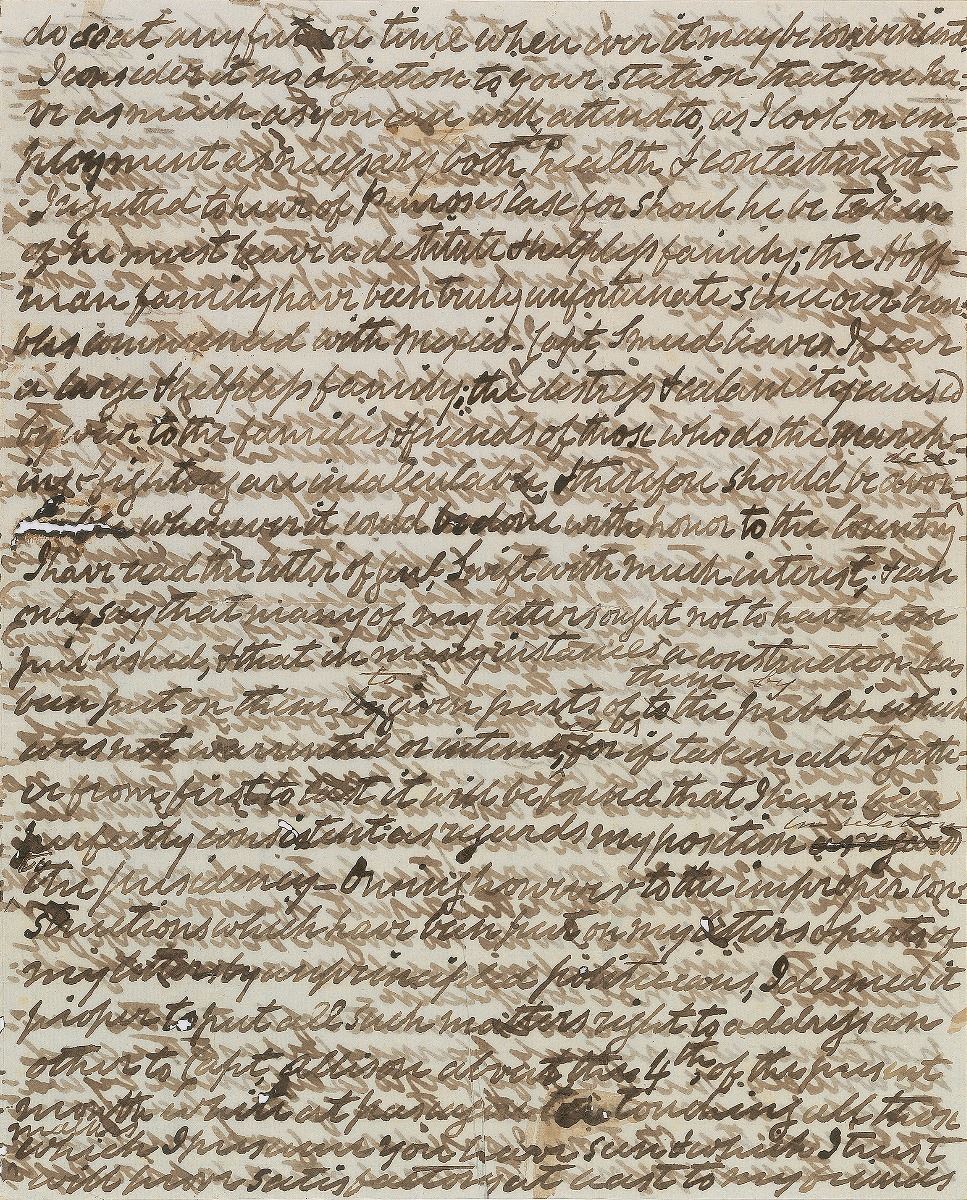 do so at any future time when ever it may be convenient
I consider it no objection to your station that you ha-
ve as much as you can well attend to, as I look on em-
ployment as necessary both health & contentment-
I regretted to hear of Penroses case for should he be taken
off he must leave a destitute & helpless family; the Hoff-
man family have been truly unfortunate since our trou-
bles commenced with Mexico- Capt. Smead leaves I fear
a large & helpless family; the distress & calamity caused
by war to the families & friends of those who do the march-
ing & fighting are incalculable, & therefore should be avoi-
whenever it could be done with honor to the Country
I have read the letter of Genl. Swift with much interest, & can
only say that many of my letters ought not to have been
published, & that in many instances a construction has
been put on them, by given parts of them to the public which
was not warranted or intended, for if taken all togeth-
er from first to last it will be found that I have been
perfectly consistent as regards my position
the presidency- Owing however to the improper con-
structions which have been put on my letters & parts of
my letter by unprincipled politicians, I deemed it
proper to put all such matters right to address an
other to Capt. Allison about the 4th of the present
month while at touching all those
which I presume you have seen & which I trust
with prove satisfactory at least to my friends